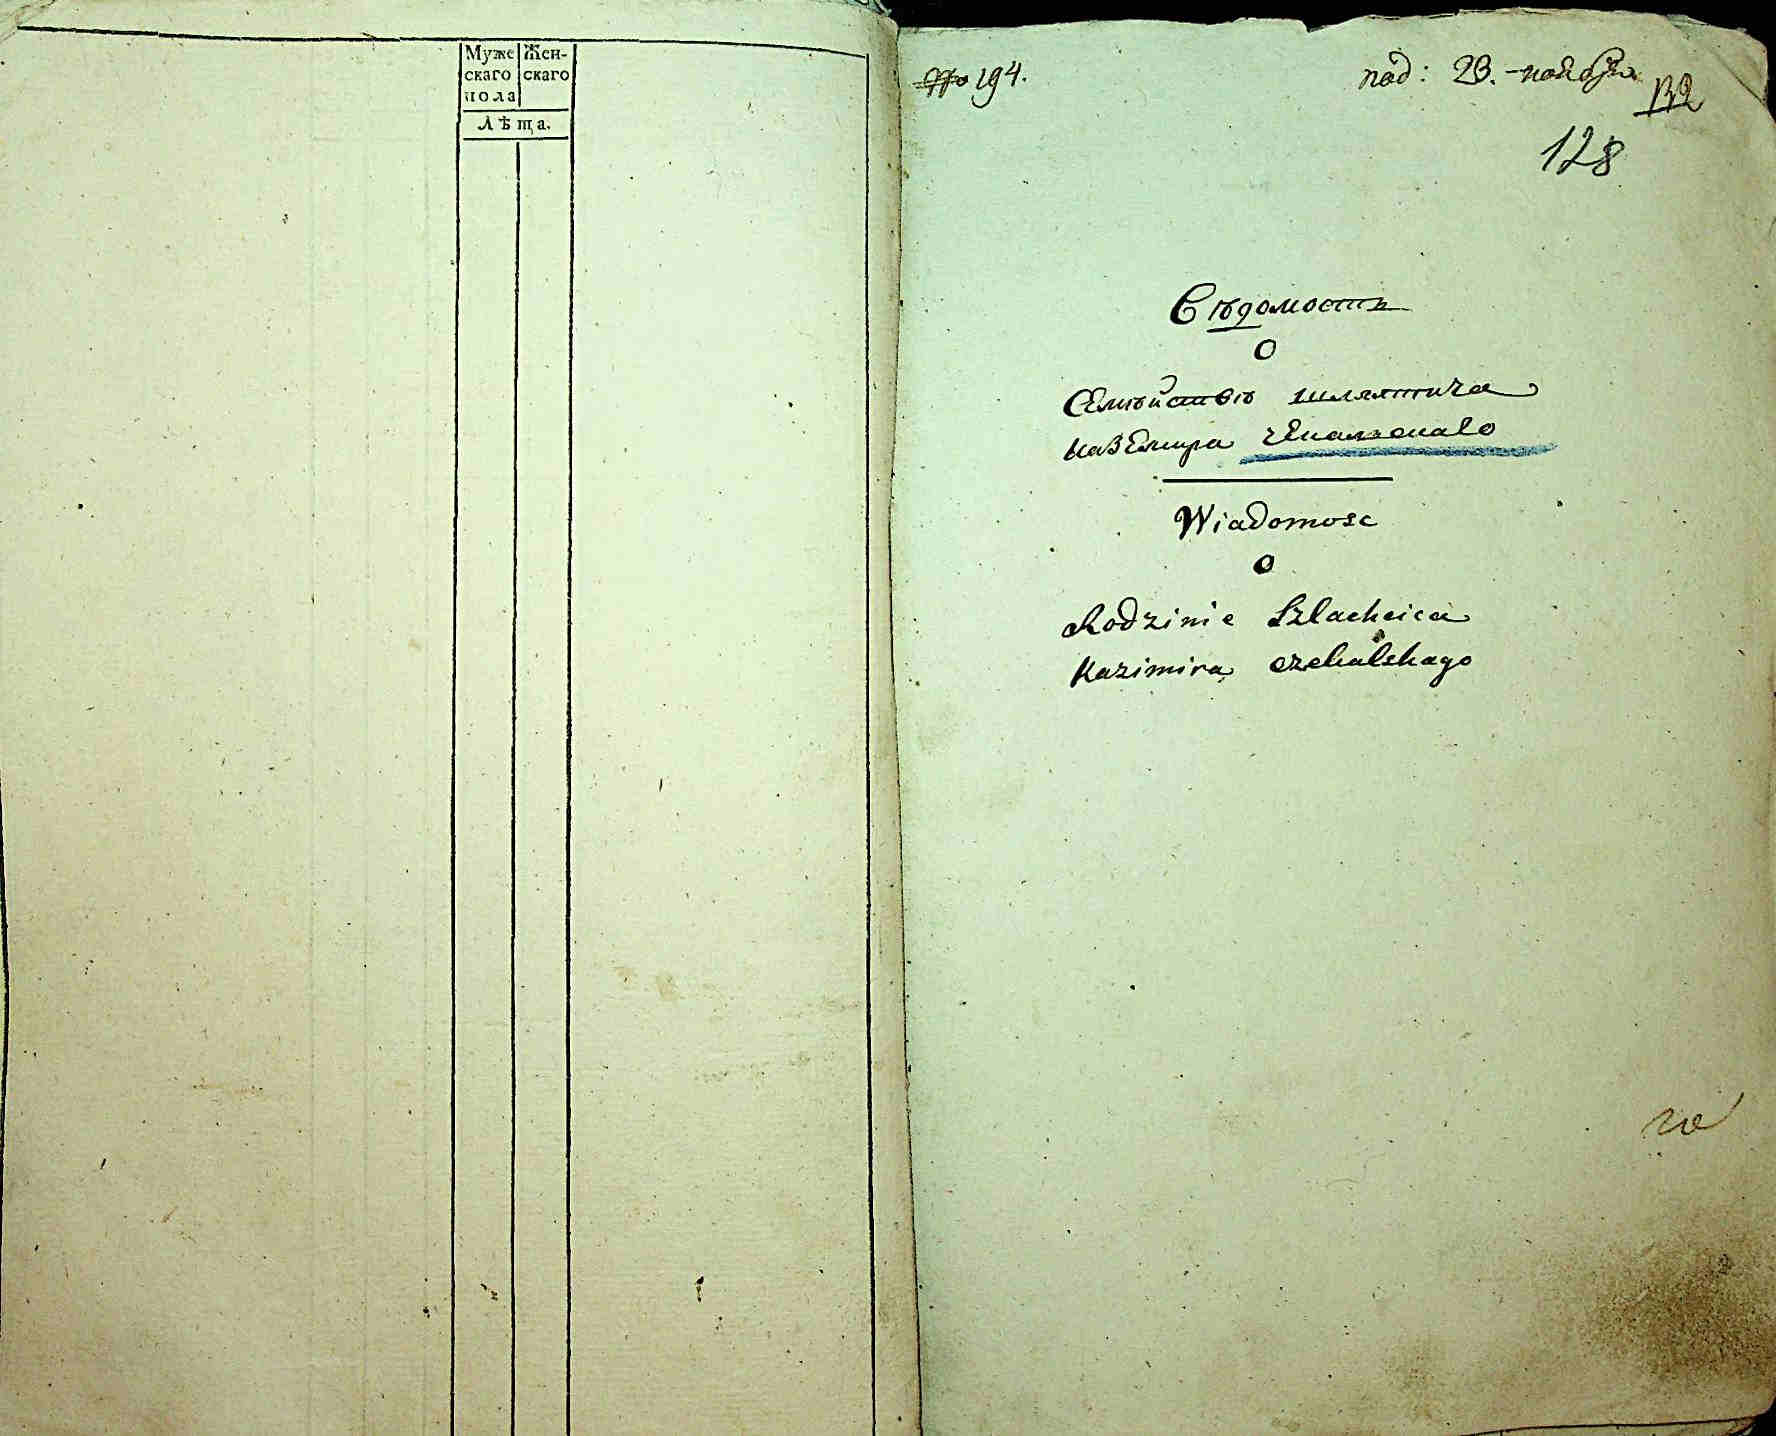 Муже Жен-
скаго скаго
пола
Лѣта.
No 194.
под: 23. ноября
132
128
Вѣдомость
О
Семѣйствѣ шляхтича
Каземира Чекальскаго
Wiadomosc
o
Rodzinie Szlachcica
Kazimira Czekalskago